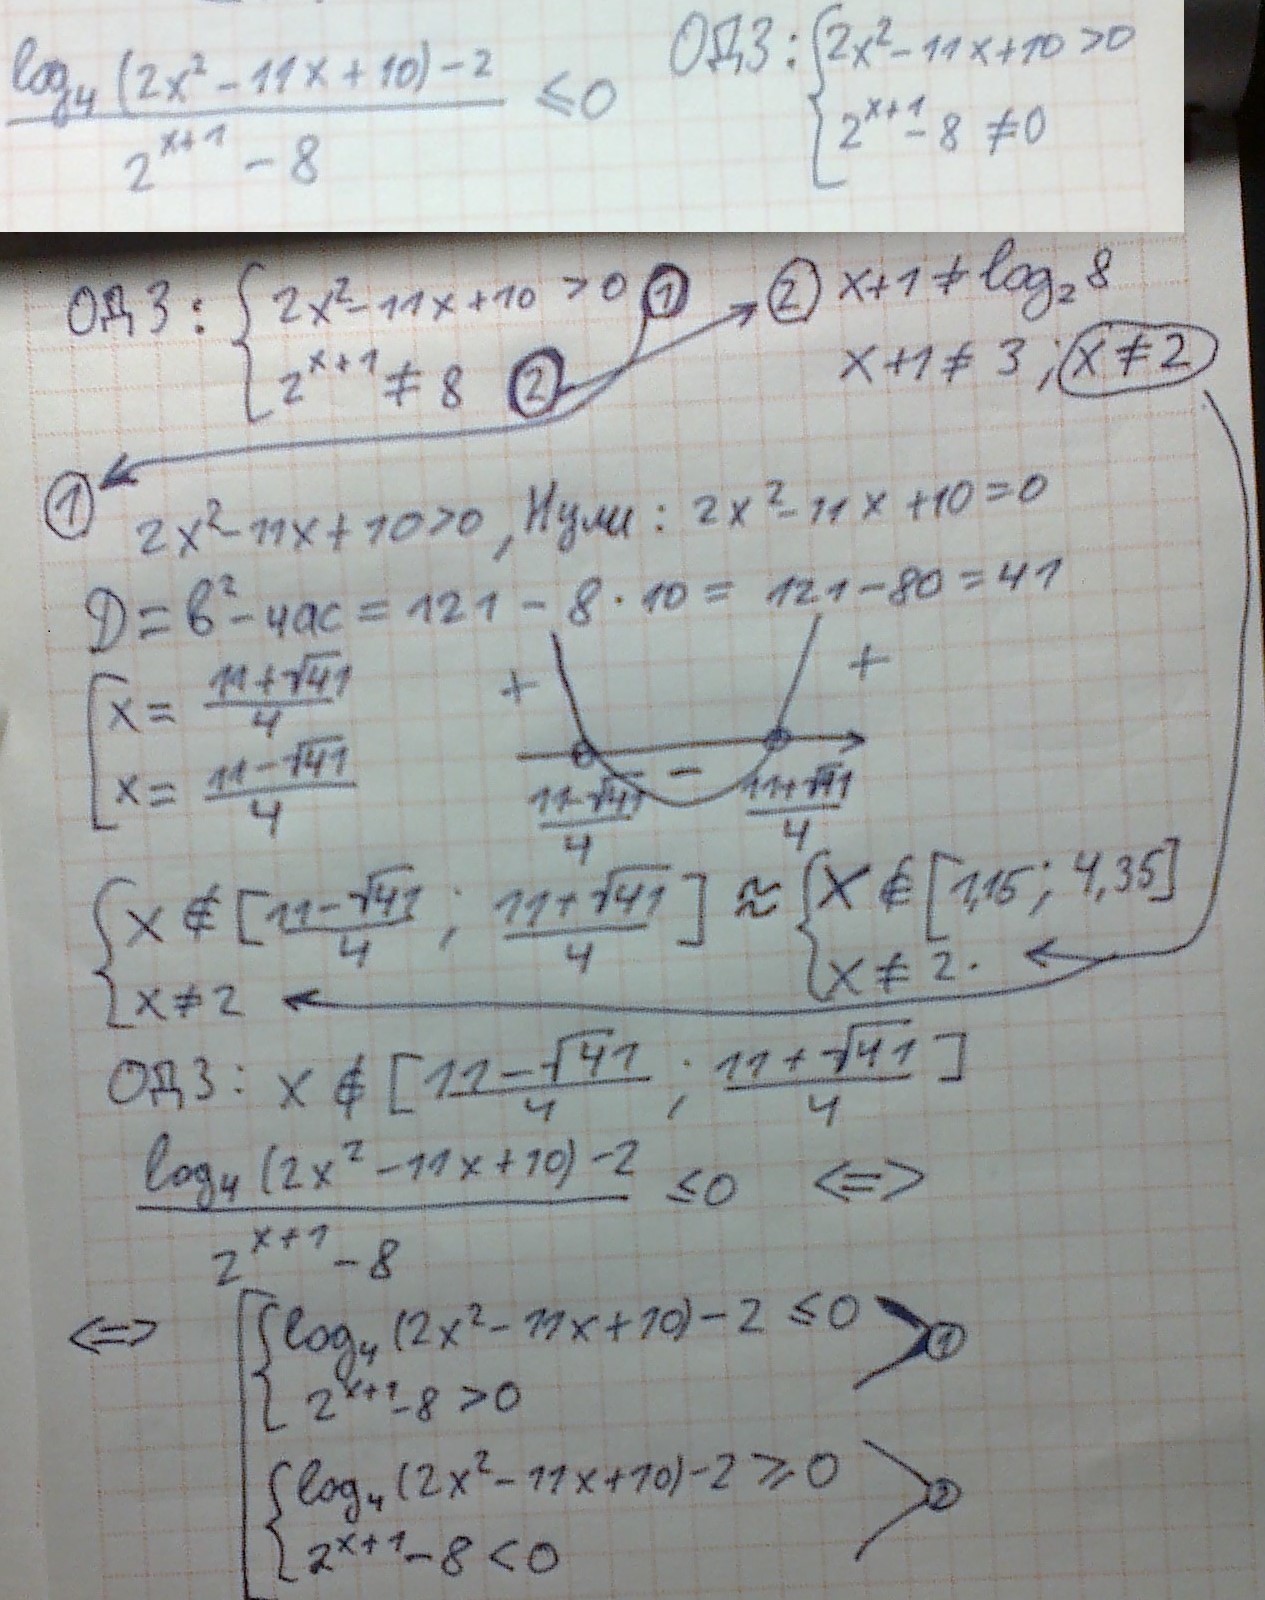 log₄(2x²-11x+10)-2 / 2^(x+1) - 8 ≤0
ОДЗ: { 2x²-11x+10 >0
2^(x+1) - 8 ≠0
ОДЗ: { 2x²-11x+10 >0 ①
2^(x+1) ≠ 8 ②
② x+1≠log₂8
x+1≠3; x≠2
① 2x²-11x+10>0, Нули: 2x²-11x+10=0
D=b²-4ac=121-8·10=121-80=41
[ x= (11+√41)/4
x= (11-√41)/4
+ - +
(11-√41)/4 (11+√41)/4
{ x∉[(11-√41)/4 ; (11+√41)/4] ≈ { x∉[1,15; 4,35]
x≠2 x≠2.
ОДЗ: x∉[(11-√41)/4 ; (11+√41)/4]
log₄(2x²-11x+10)-2 / 2^(x+1) - 8 ≤0 <=>
<=> [ { log₄(2x²-11x+10)-2≤0 ①
2^(x+1) - 8 >0
{ log₄(2x²-11x+10)-2≥0 ②
2^(x+1) - 8 <0